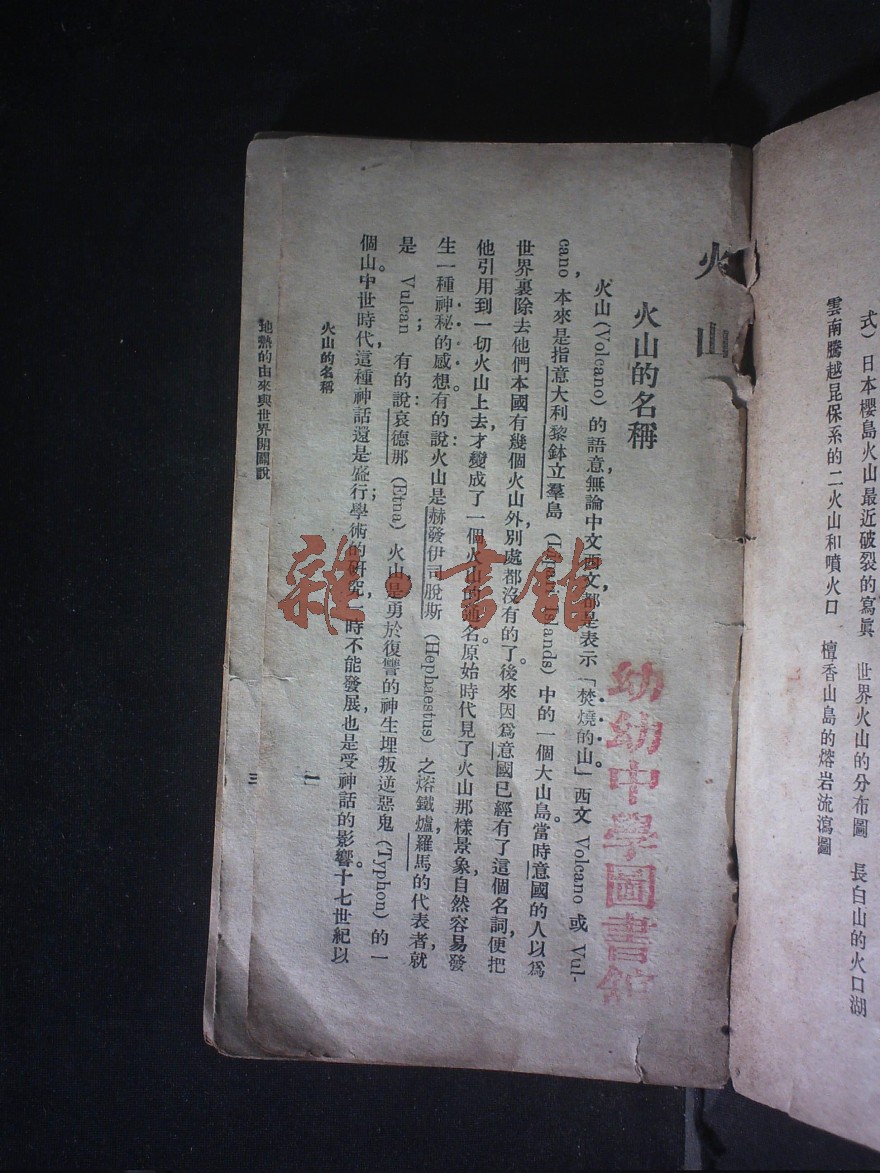 式）日本櫻島火山最近破裂的寫眞　世界火山的分布圖　長白山的火口湖
雲南騰越昆保系的二火山和噴火口　檀香山島的熔岩流瀉圖
火山
火山的名稱
火山(Volcano)的語意，無論中文西文，都是表示「焚燒的山」。西文 Volcano 或 Vul-
cano，本來是指意大利黎鉢立羣島（Lipari Islands）中的一個大山島。當時意國的人以爲
世界裏除去他們本國有幾個火山外，別處都沒有的了。後來因爲意國已經有了這個名詞，便把
他引用到一切火山上去，才變成了一個火山的通名。原始時代見了火山那樣景象，自然容易發
生一種神秘的感想。有的說：火山是赫發伊司脫斯（Hephaestus）之熔鐵爐，羅馬的代表者，就
是 Vulcan；有的說：哀德那（Etna）火山，是勇於復讐的神生埋叛逆惡鬼（Typhon）的一
個山。中世時代，這種神話還是盛行；學術的研究，一時不能發展，也是受神話的影響。十七世紀以
火山的名稱
一
地熱的由來與世界開闢說
三
幼幼中學圖書館
雜·書館